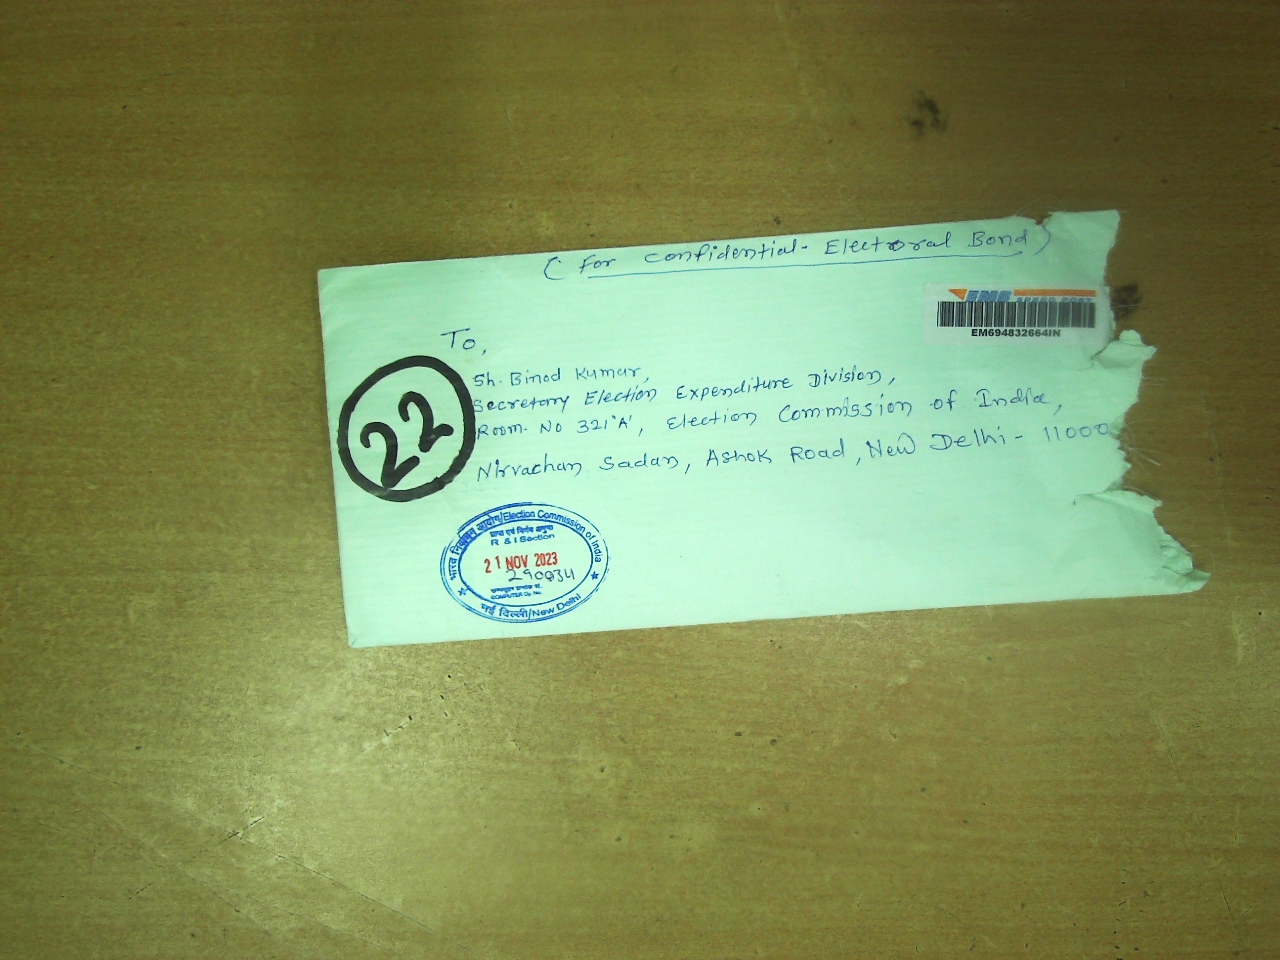 ( For Confidential- Electoral Bond )
EMS SPEED POST
EM694832664IN
To,
Sh. Binod Kumar,
Secretary Election Expenditure Division,
Room. No 321'A', Election Commission of India,
Nirvachan Sadan, Ashok Road, New Delhi - 11000
22
भारत निर्वाचन आयोग/Election Commission of India
R & I Section
21 NOV 2023
290034
COMPUTER Dy. No.
नई दिल्ली/New Delhi